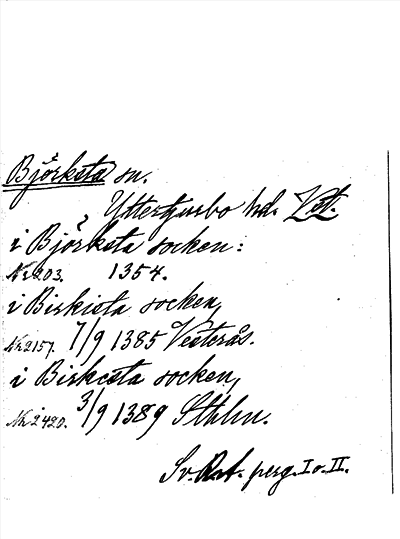 Björksta sn.
Yttertjurbo hd. Vstl.
i Björksta socken:
Nr 203. 1354.
i Birkista socken,
Nr 2157. 7/9 1385 Vesterås.
i Birkesta socken,
Nr 2420. 3/9 1389 Sthlm.
Sv. R.A. perg. I o. II.